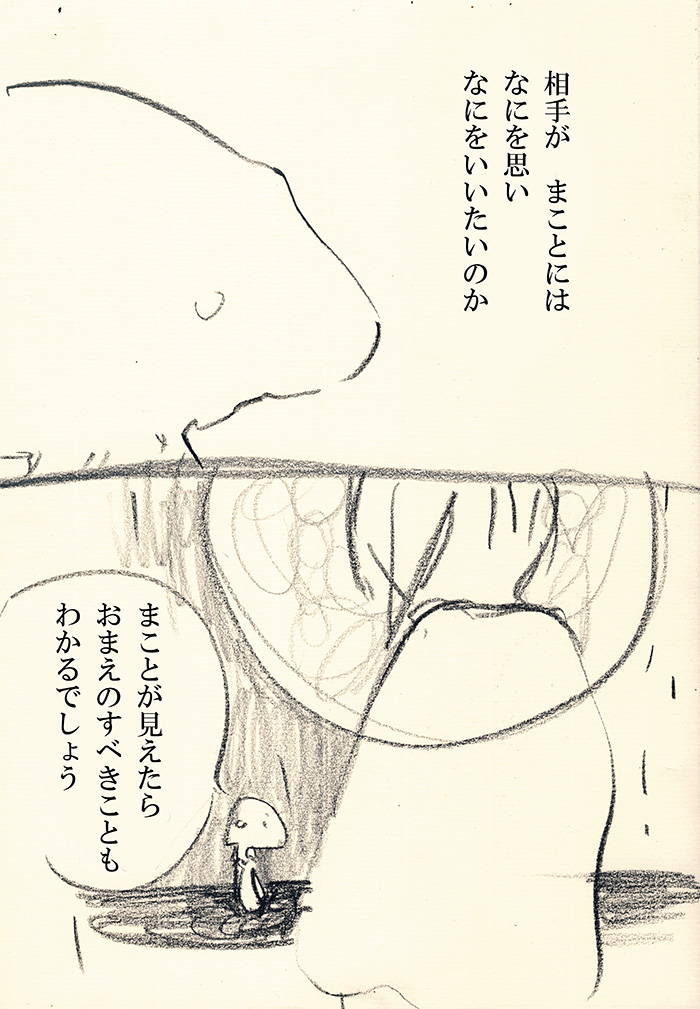 相手が　まことには
なにを思い
なにをいいたいのか
まことが見えたら
おまえのすべきことも
わかるでしょう